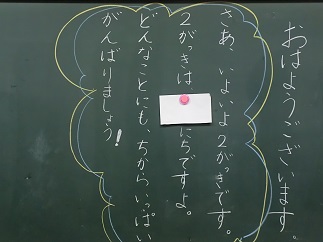 おはようございます。
さあ、いよいよ2がっきです。
2がっきは にちですよ。
どんなことにも、ちからいっぱい
がんばりましょう!